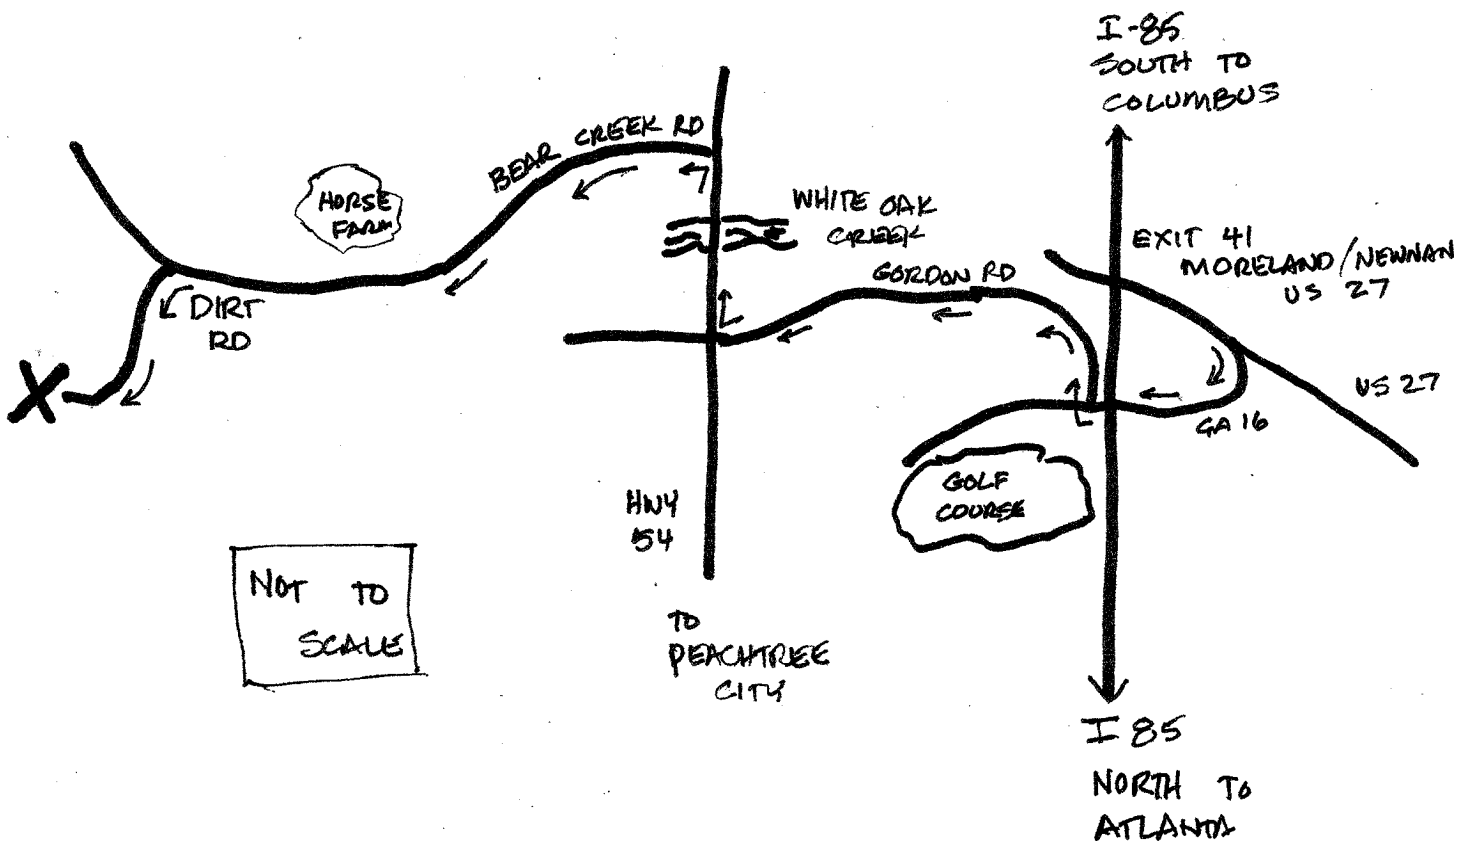 I-85
SOUTH TO
COLUMBUS
BEAR CREEK RD
HORSE
FARM
WHITE OAK
CREEK
EXIT 41
MORELAND/NEWNAN
US 27
GORDON RD
DIRT
RD
US 27
GA 16
GOLF
COURSE
HWY
54
NOT TO
SCALE
TO
PEACHTREE
CITY
I 85
NORTH TO
ATLANTA
X